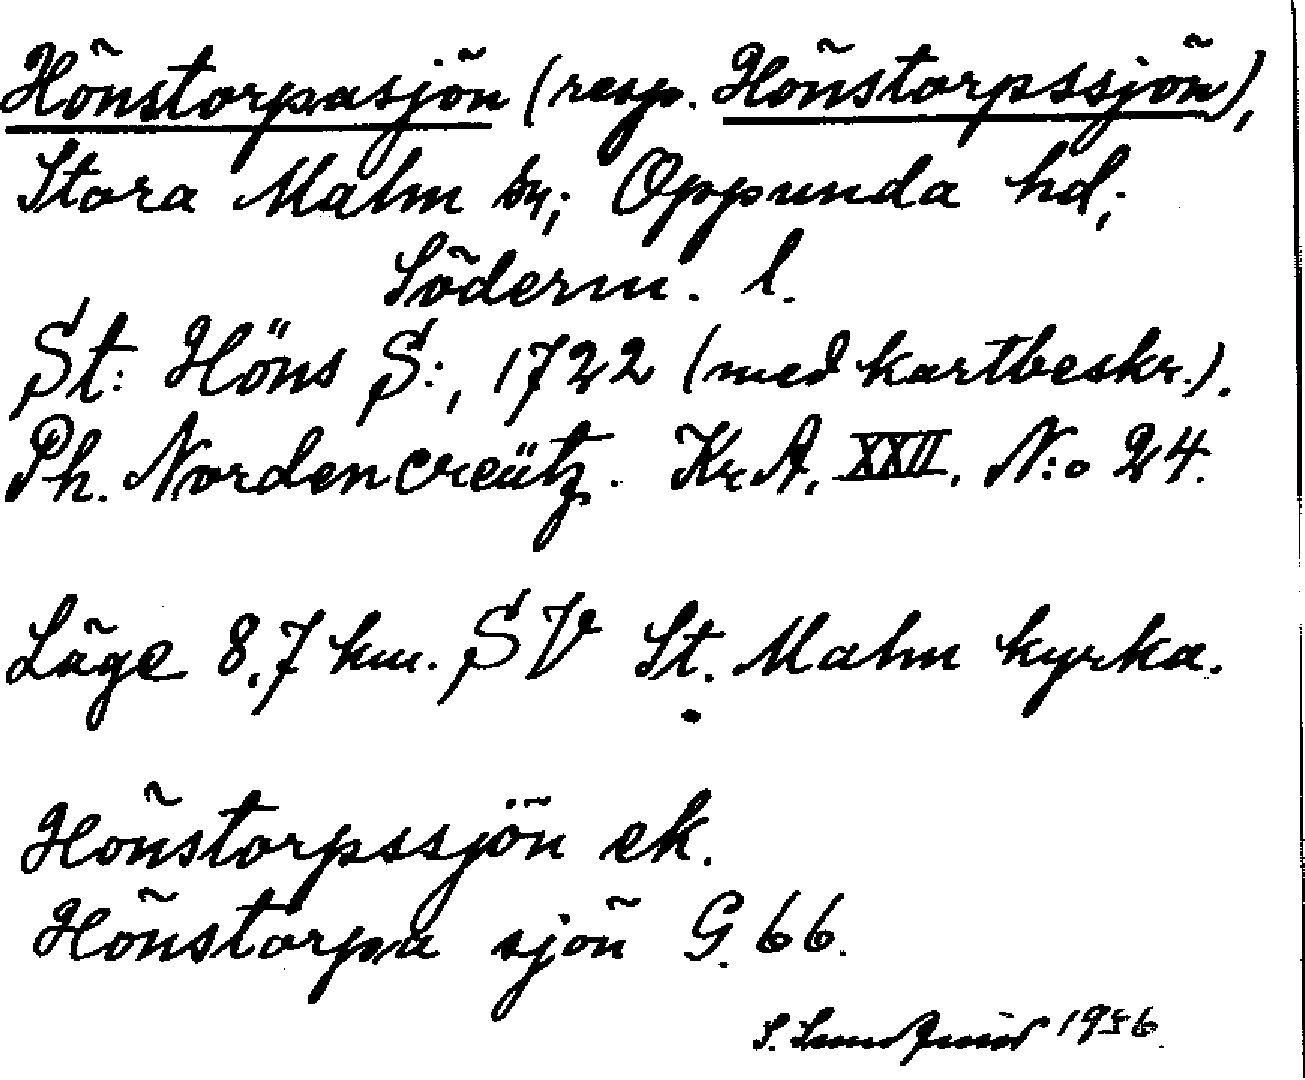 Hönstorpasjön (resp. Hönstorpssjön),
Stora Malm sn; Oppunda hd;
Söderm. l.
St: Höns S:, 1722 (med kartbeskr.).
Ph. Nordencreütz. Kr.A. XXII. N:o 24.
Läge 8,7 km. SV St. Malm kyrka.
Hönstorpssjön ek.
Hönstorpa sjön G. 66.
S. 1956.